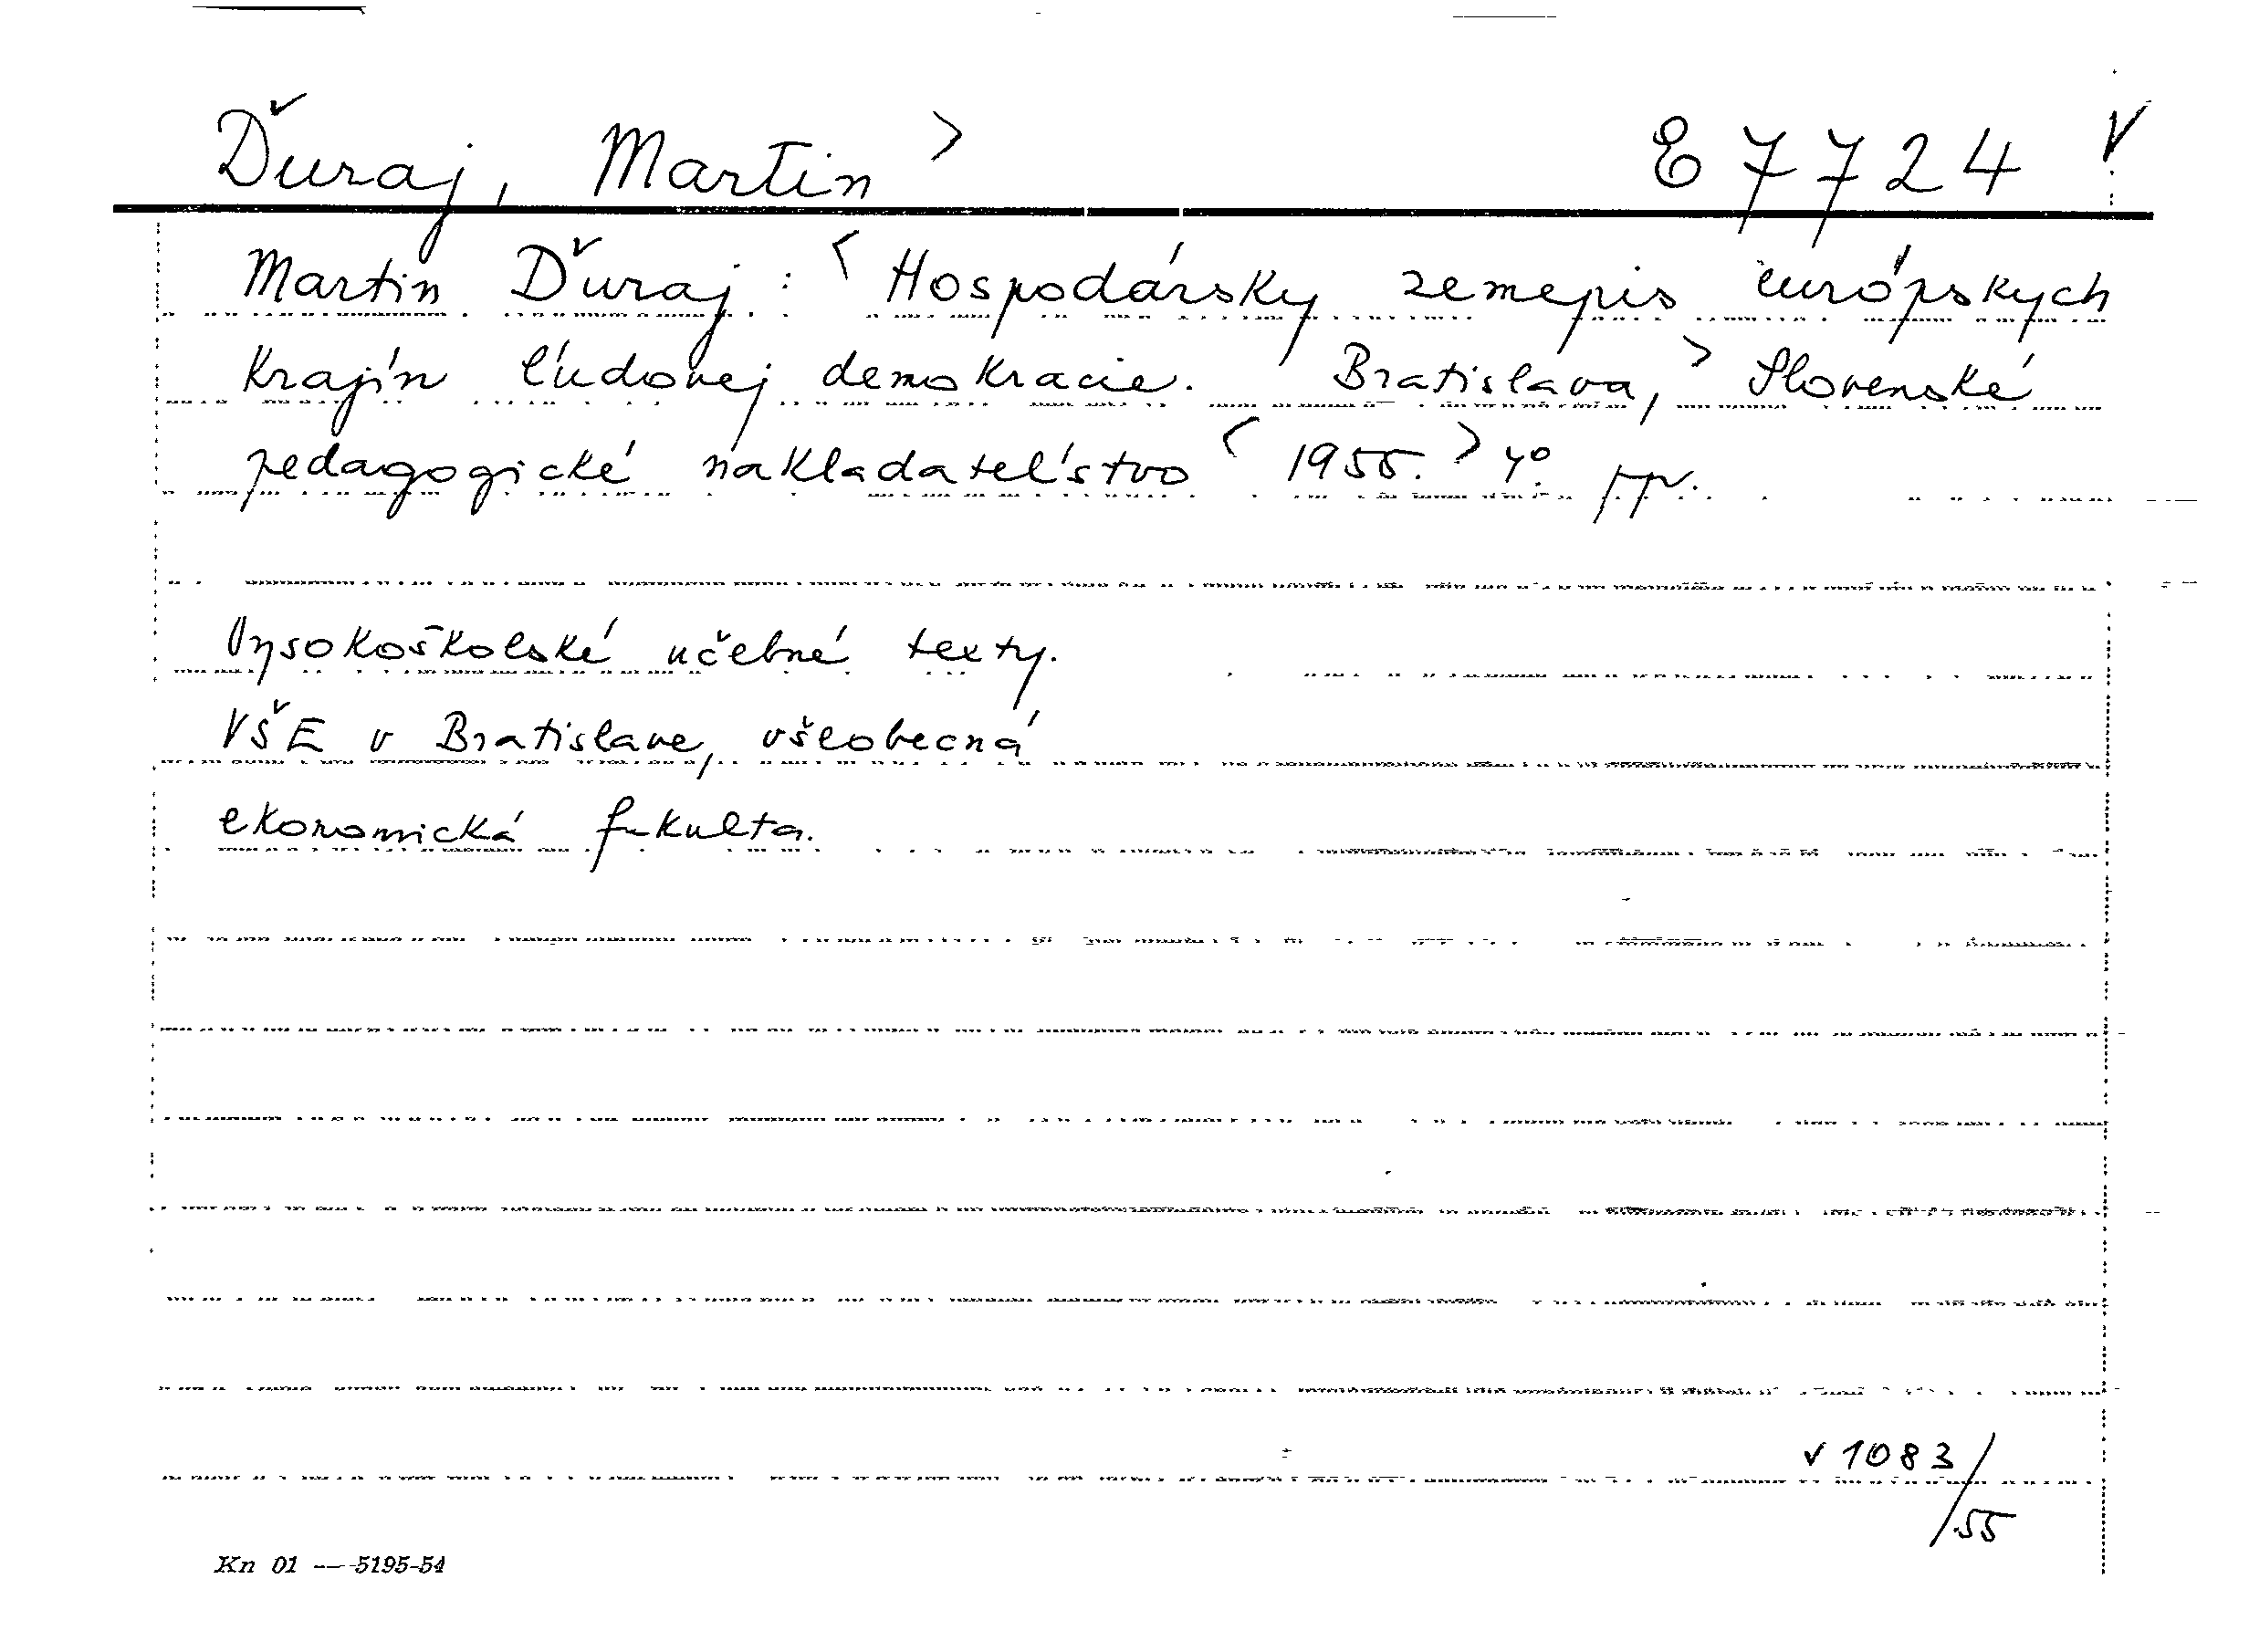 Ďuraj, Martin > E 7724 V
Martin Ďuraj: < Hospodársky zemepis európskych
krajín ľudovej demokracie. Bratislava, > Slovenské
pedagogické nakladateľstvo < 1955. > 4°. pp.
Vysokoškolské učebné texty.
VŠE v Bratislave, všeobecná
ekonomická fakulta.
v 1083/
/55
Kn 01 — 5195-54